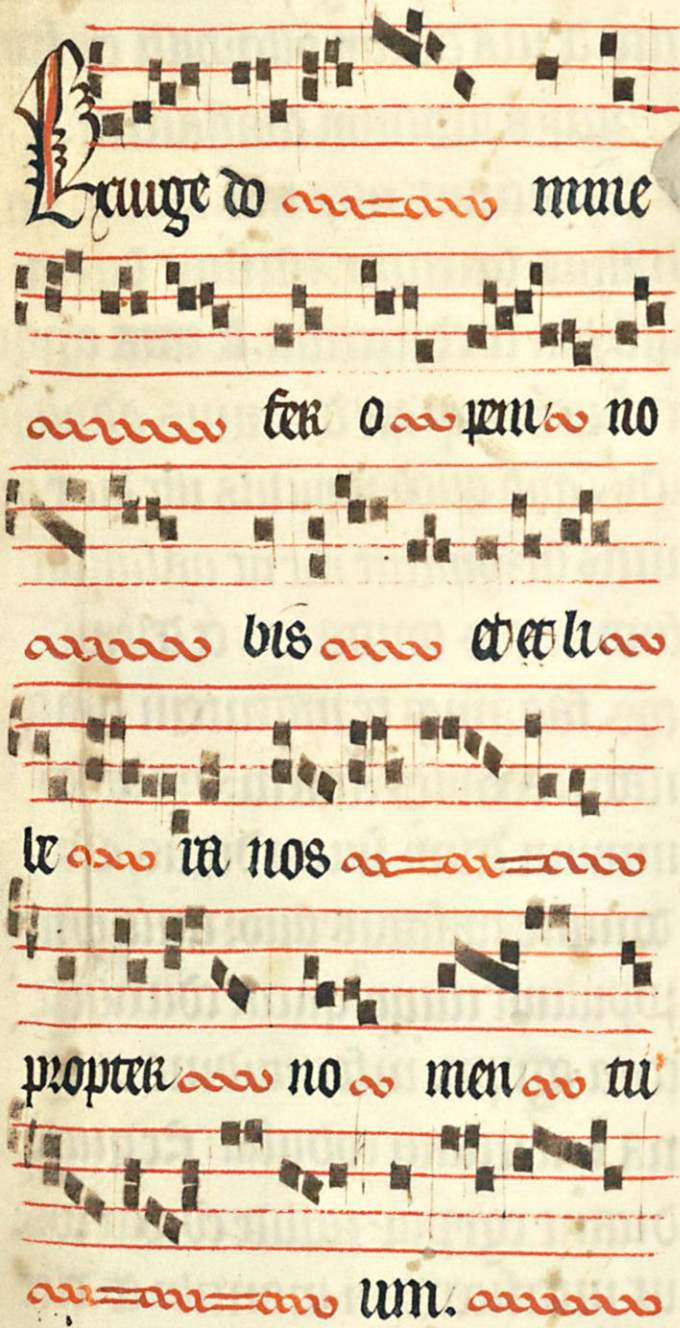 Exurge do mine
fer o pem no
bis et et li
le ra nos
propter no men tu
um.